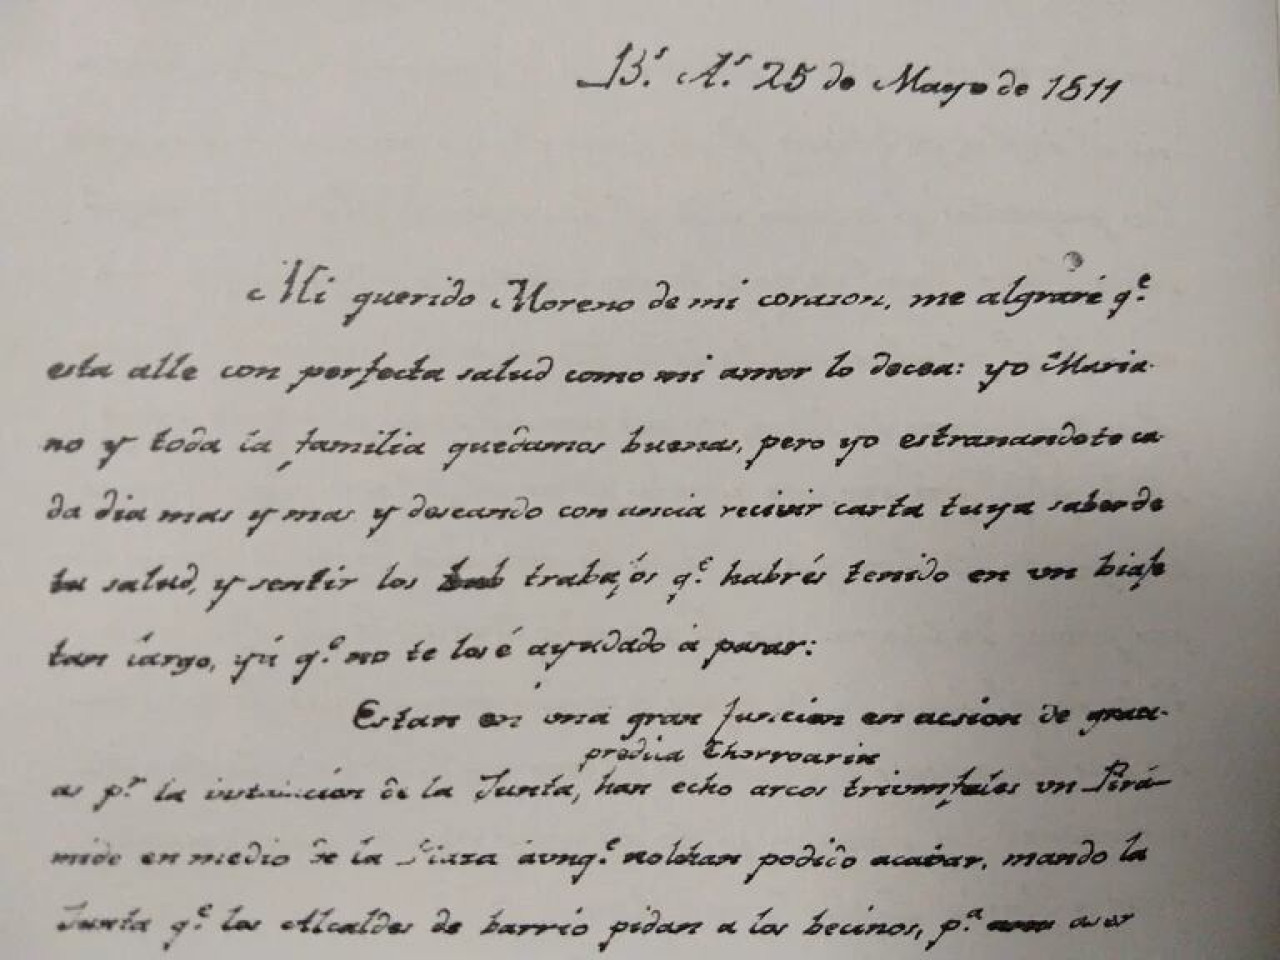 B.s A.s 25 de Mayo de 1811
Mi querido Moreno de mi corazon, me algraré q.e
esta alle con perfecta salud como mi amor lo decea: yo Maria-
no y toda la familia quedamos buenos, pero yo estranandote ca-
da dia mas y mas y deseando con ancia recivir carta tuya saber de
tu salud, y sentir los trabajos q.e habrés tenido en un biaje
tan largo, yá q.e no te los é ayudado á pasar:
Estan en una gran funcion en acsion de graci-
predica Chorroarin
as p.r la instalación de la Junta, han echo arcos triumfales un Pirá-
mide en medio de la Plaza áunq.e nolohan podido acavar, mando la
Junta q.e los Alcaldes de barrio pidan a los becinos, p.a